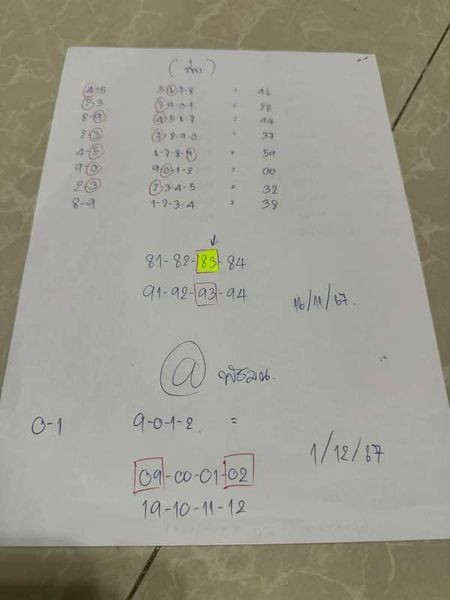 (ล่าง)
4-5 5-6-7-8 = 46
2-3 8-9-0-1 = 28
8-9 4-5-6-7 = 94
2-3 7-8-9-0 = 37
4-5 6-7-8-9 = 59
9-0 9-0-1-2 = 00
2-3 2-3-4-5 = 32
8-9 1-2-3-4 = 38
81-82-83-84
91-92-93-94
16/11/67
@
0-1 9-0-1-2 =
1/12/67
09-00-01-02
19-10-11-12